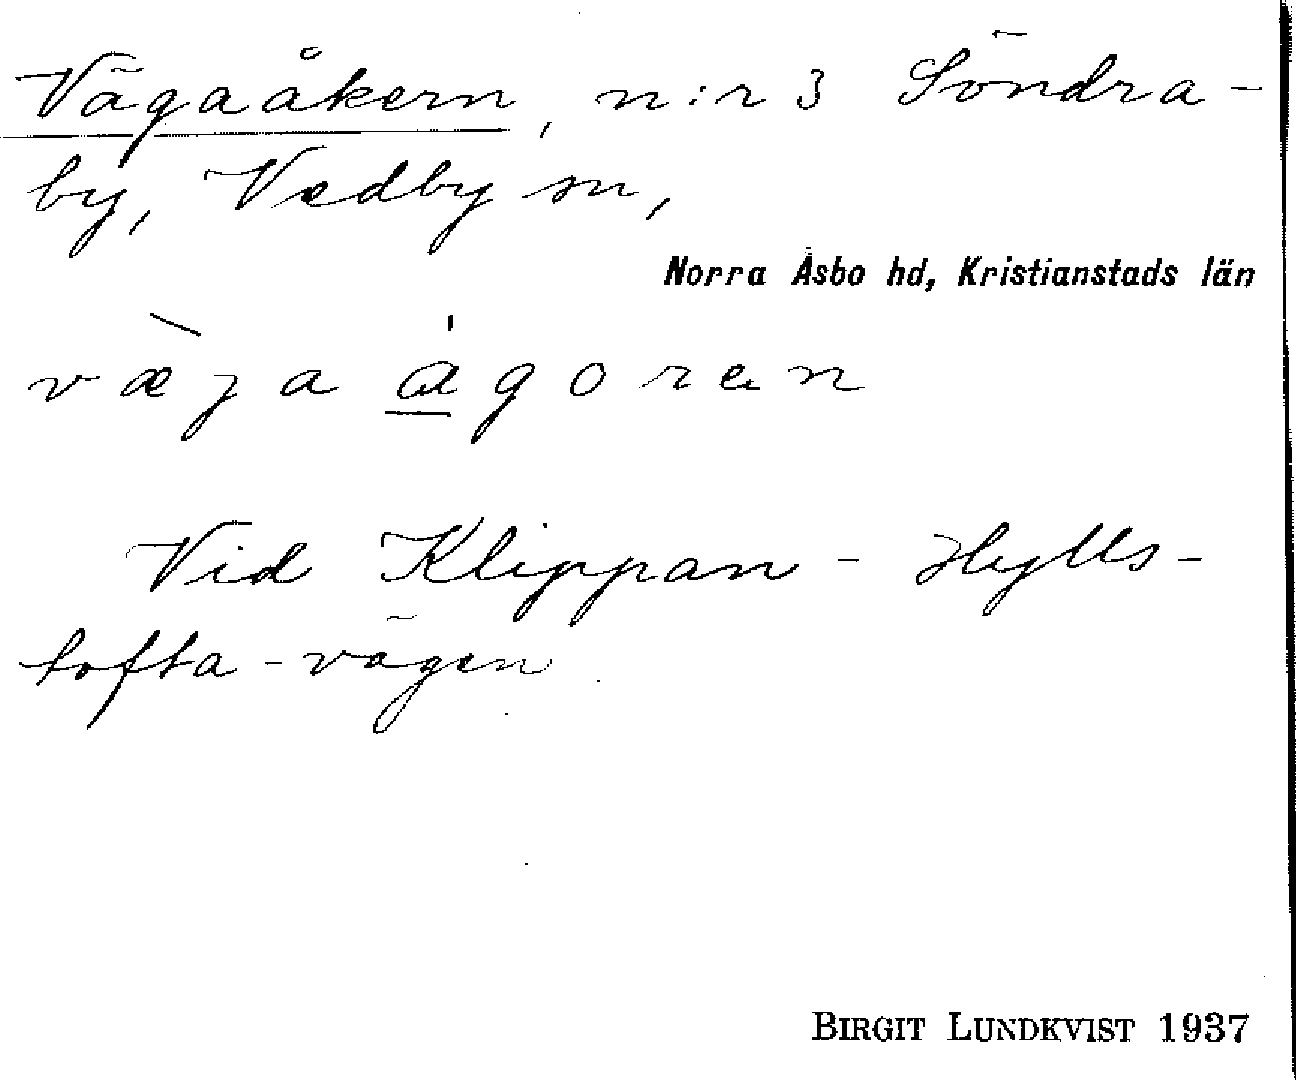 Vägaåkern, n:r 3 Söndra-
by, Vedby sn,
Norra Åsbo hd, Kristianstads län
væ̀ja ágoran
Vid Klippan - Hylls-
tofta-vägen
BIRGIT LUNDKVIST 1937